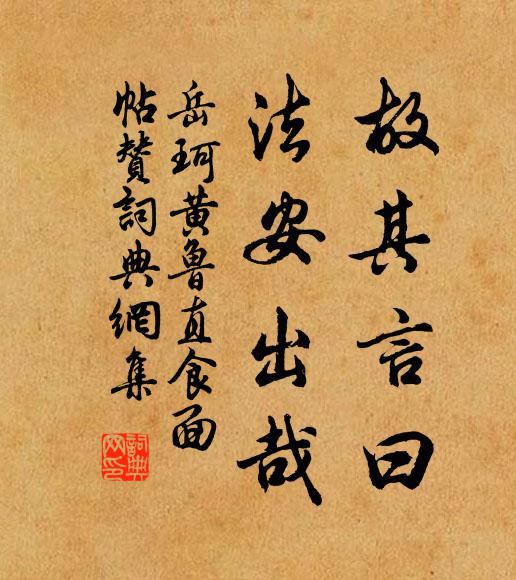 故其言曰
法安出哉
岳珂黃魯直食面
帖贊詞典網集
詞典网印